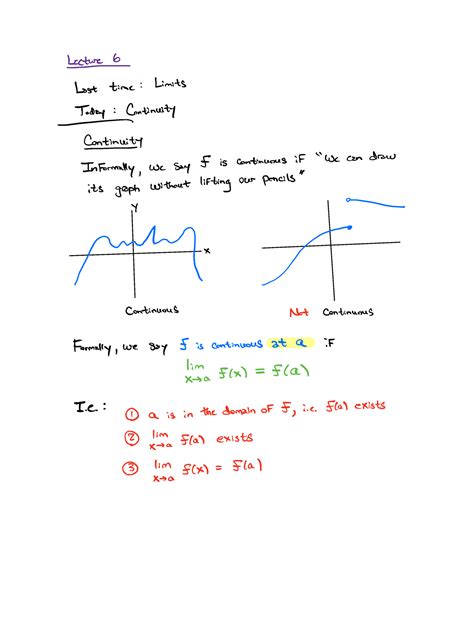 Lecture 6
Last time: Limits
Today: Continuity
Continuity
Informally, we say f is continuous if "we can draw
its graph without lifting our pencils"
y
x
Continuous
Not Continuous
Formally, we say f is continuous at a if
lim x→a f(x) = f(a)
I.e:
① a is in the domain of f, i.e. f(a) exists
② lim x→a f(a) exists
③ lim x→a f(x) = f(a)